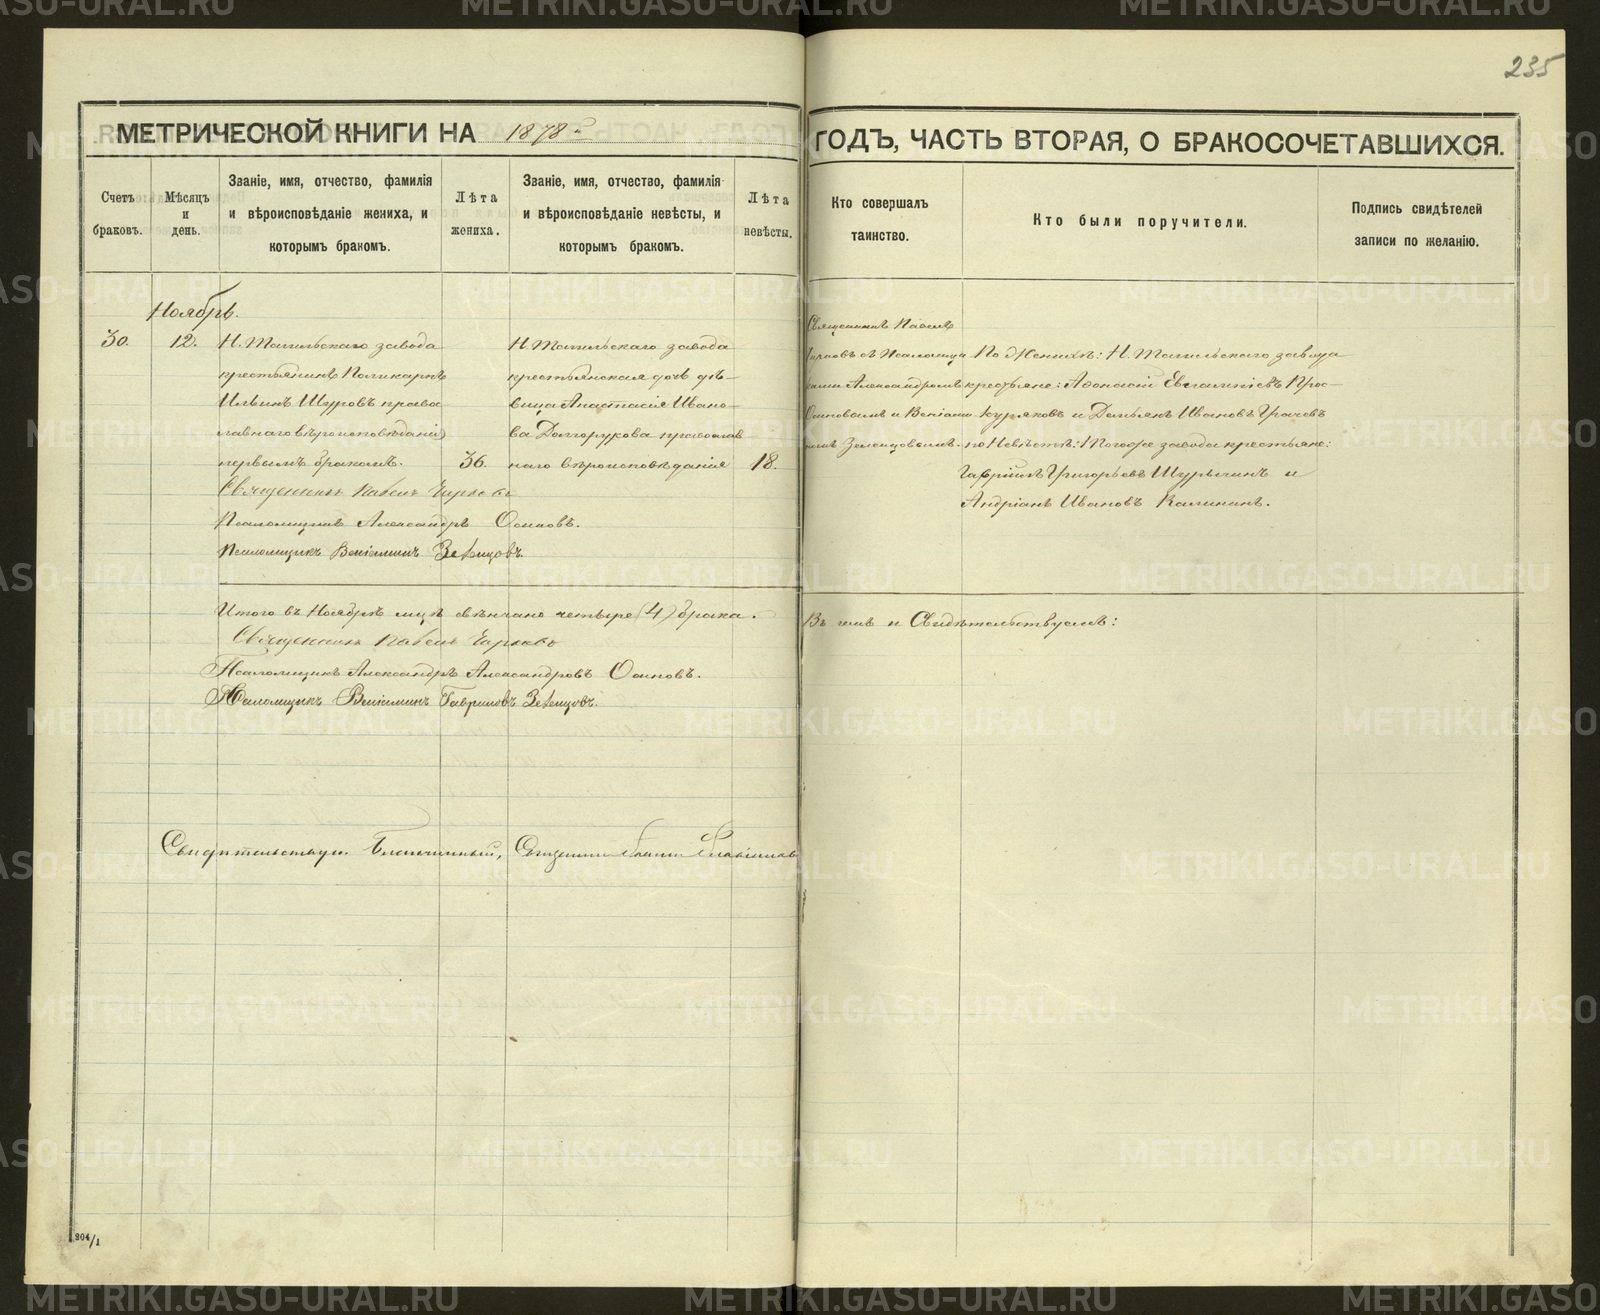 235
МЕТРИЧЕСКОЙ КНИГИ НА 1878й ГОДЪ, ЧАСТЬ ВТОРАЯ, О БРАКОСОЧЕТАВШИХСЯ.
Счетъ браковъ.
Мѣсяцъ и день.
Званіе, имя, отчество, фамилія и вѣроисповѣданіе жениха, и которымъ бракомъ.
Лѣта жениха.
Званіе, имя, отчество, фамилія и вѣроисповѣданіе невѣсты, и которымъ бракомъ.
Лѣта невѣсты.
Кто совершалъ таинство.
Кто были поручители.
Подпись свидѣтелей записи по желанію.
Ноябрь.
30.
12.
Н. Тагильскаго завода
крестьянинъ Поликарпъ
Ильинъ Щуровъ право
славнаго вѣроисповѣданія
первымъ бракомъ.
36.
Н. Тагильскаго завода
крестьянская дочь дѣ–
вица Анастасія Ивано–
ва Долгорукова православ
наго вѣроисповѣданія
18.
Священникъ Павелъ
съ Псаломщи
ками Александромъ
Осиповымъ и Веніами
номъ Зеленцовымъ.
По Женихѣ: Н. Тагильскаго завода
крестьяне: Афанасій Евгампіевъ Прос–
куряковъ и Демьянъ Ивановъ Грачевъ
по Невѣстѣ: Тогоже завода крестьяне:
Гавріилъ Григорьевъ Шурыгинъ и
Андріанъ Ивановъ Калининъ.
Священникъ Павелъ
Псаломщикъ Александръ Осиповъ.
Псаломщикъ Веніаминъ Зеленцовъ.
Итого въ Ноябрѣ мцѣ вѣнчано четыре (4) брака.
Въ чемъ и Свидѣтельствуемъ:
Священникъ Павелъ
Псаломщикъ Александръ Александровъ Осиповъ.
Псаломщикъ Веніаминъ Гавриловъ Зеленцовъ.
Свидѣтельствую. Благочинный,
304/1
METRIKI.GASO-URAL.RU